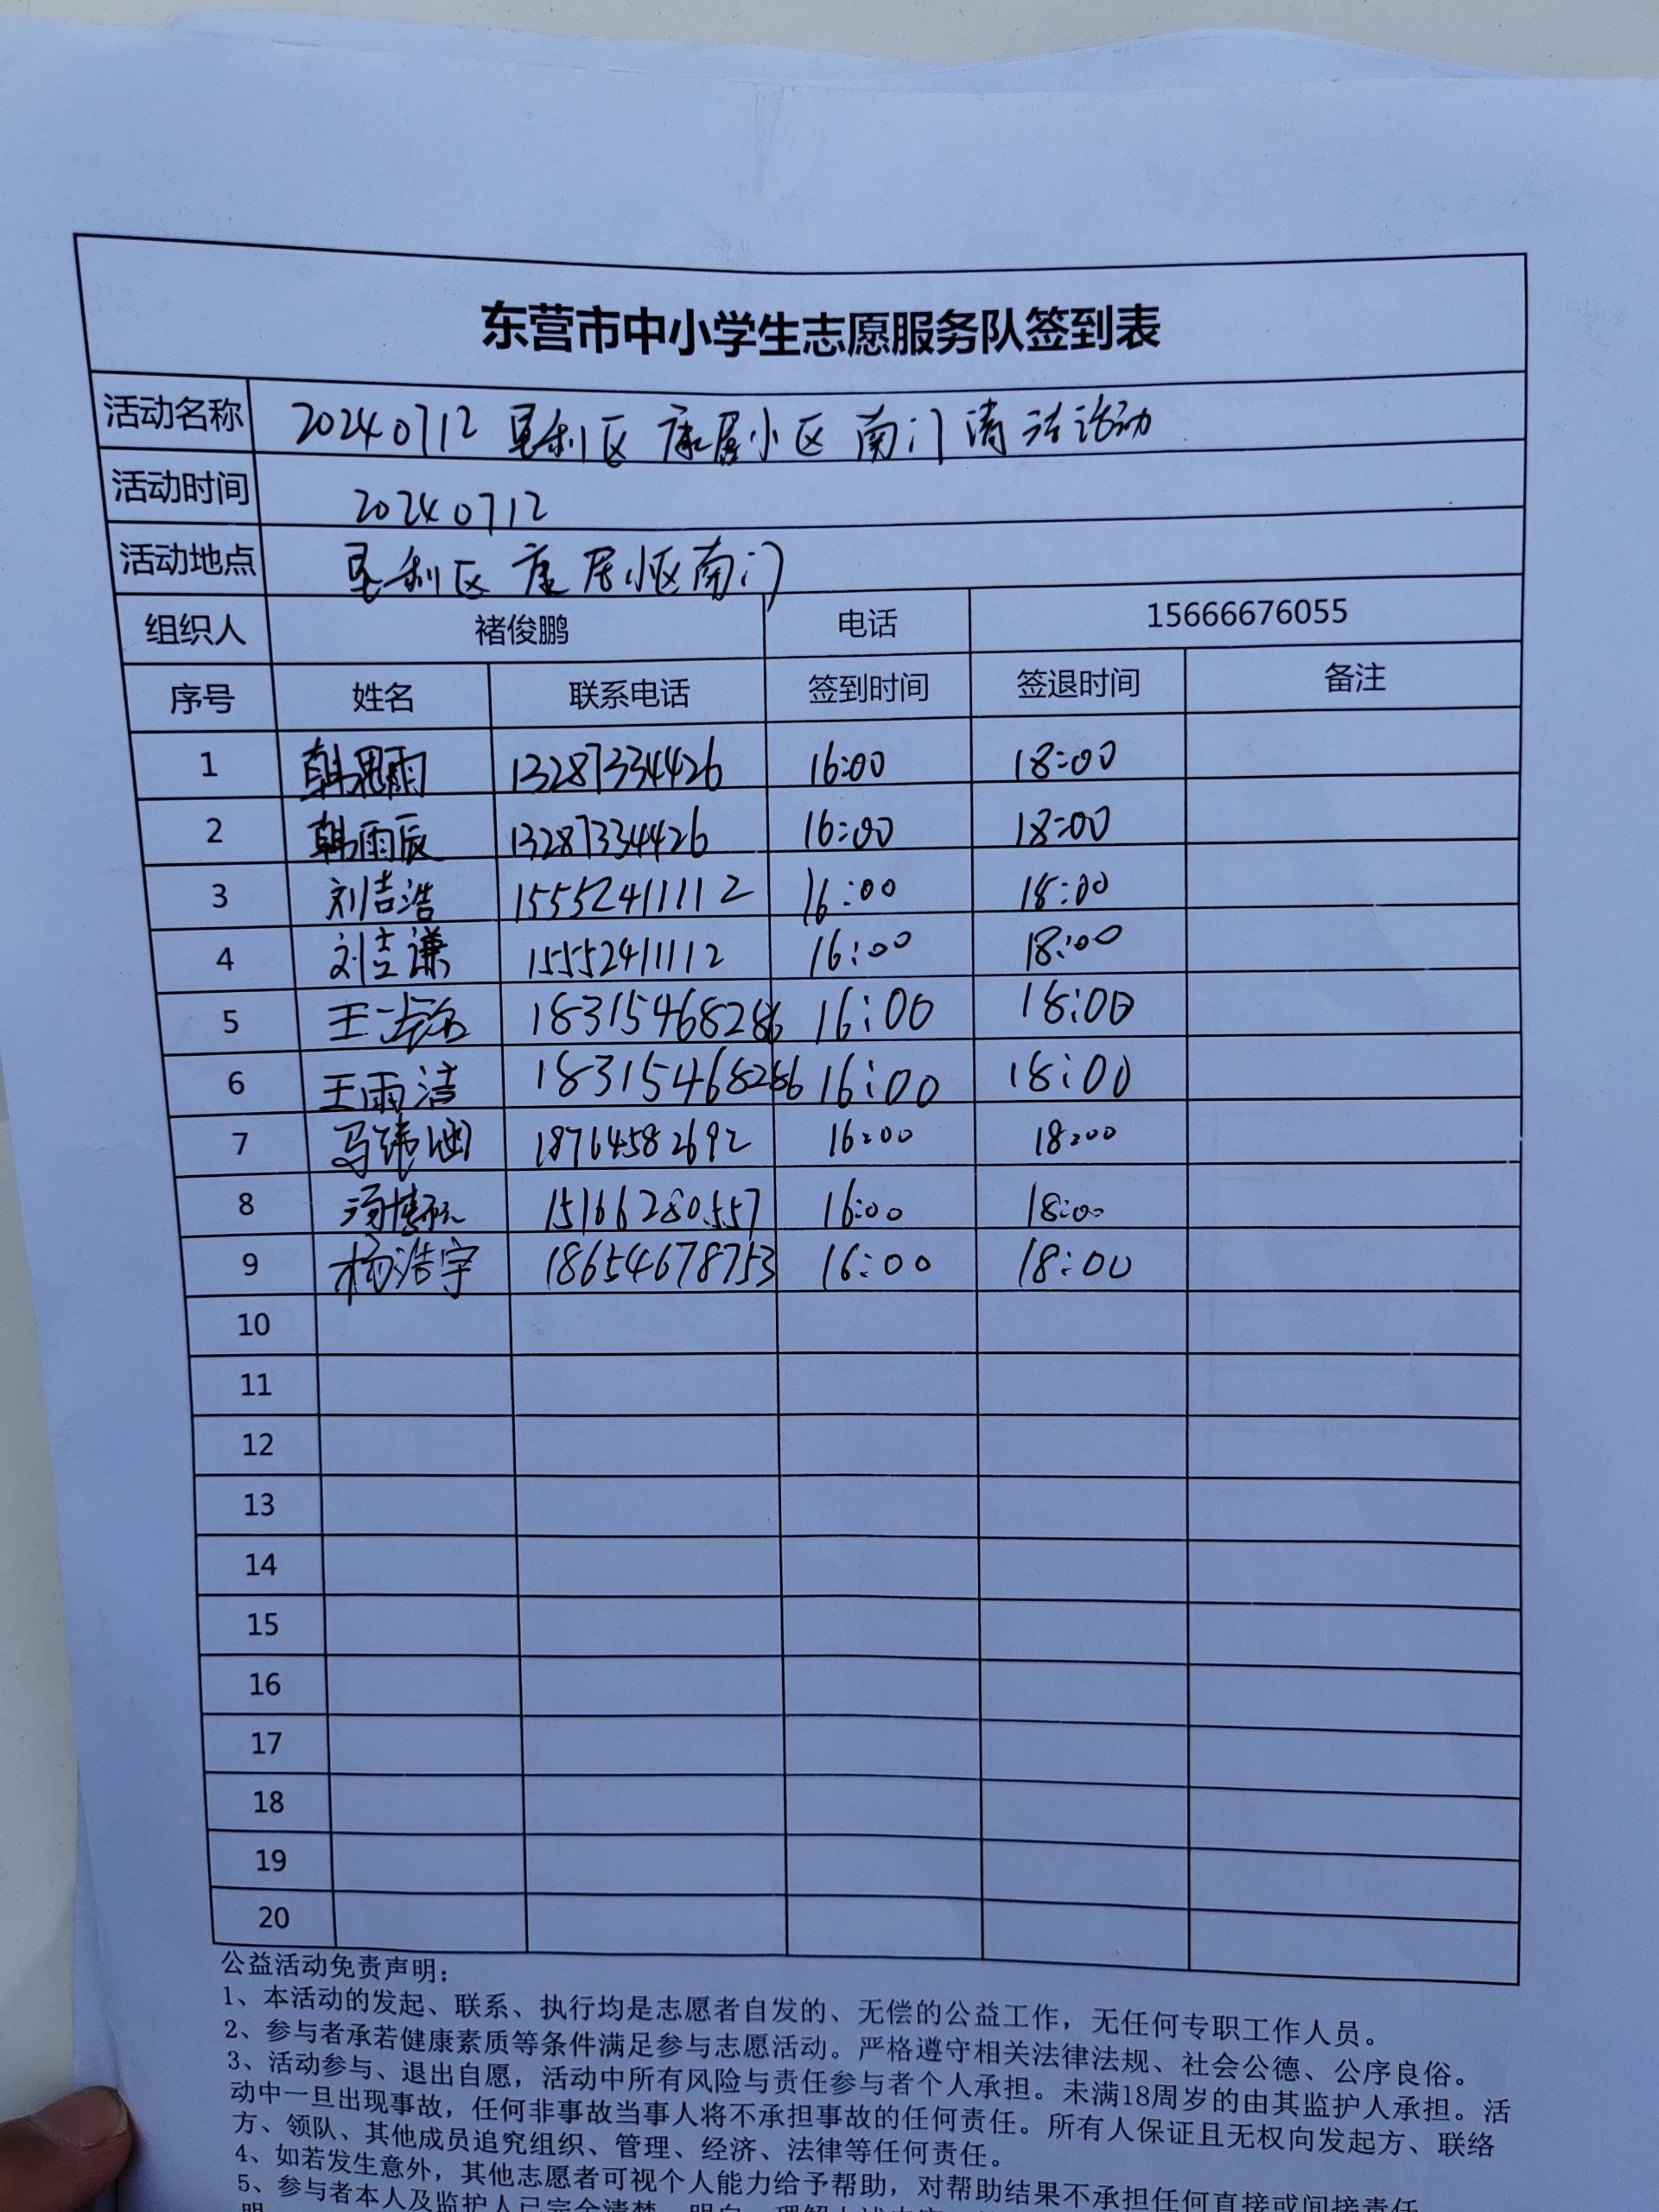 东营市中小学生志愿服务队签到表
活动名称 20240712 垦利区 康居小区 南门 清洁活动
活动时间 20240712
活动地点 垦利区 康居小区南门
组织人 褚俊鹏 电话 15666676055
序号 姓名 联系电话 签到时间 签退时间 备注
1 韩思雨 13287334426 16:00 18:00
2 韩雨辰 13287334426 16:00 18:00
3 刘吉浩 15552411112 16:00 18:00
4 刘吉谦 15552411112 16:00 18:00
5 王 18315468286 16:00 18:00
6 王雨洁 18315468286 16:00 18:00
7 马 18764582692 16:00 18:00
8 汤博 15166280557 16:00 18:00
9 杨浩宇 18654678753 16:00 18:00
10
11
12
13
14
15
16
17
18
19
20
公益活动免责声明：
1、本活动的发起、联系、执行均是志愿者自发的、无偿的公益工作，无任何专职工作人员。
2、参与者承若健康素质等条件满足参与志愿活动。严格遵守相关法律法规、社会公德、公序良俗。
3、活动参与、退出自愿，活动中所有风险与责任参与者个人承担。未满18周岁的由其监护人承担。活
动中一旦出现事故，任何非事故当事人将不承担事故的任何责任。所有人保证且无权向发起方、联络
方、领队、其他成员追究组织、管理、经济、法律等任何责任。
4、如若发生意外，其他志愿者可视个人能力给予帮助，对帮助结果不承担任何直接或间接责任
5、参与者本人及监护人已完全清楚、明白、理解